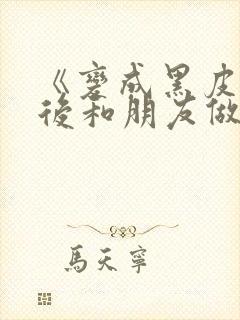 《變成黑皮
後和朋友做
馬天寧